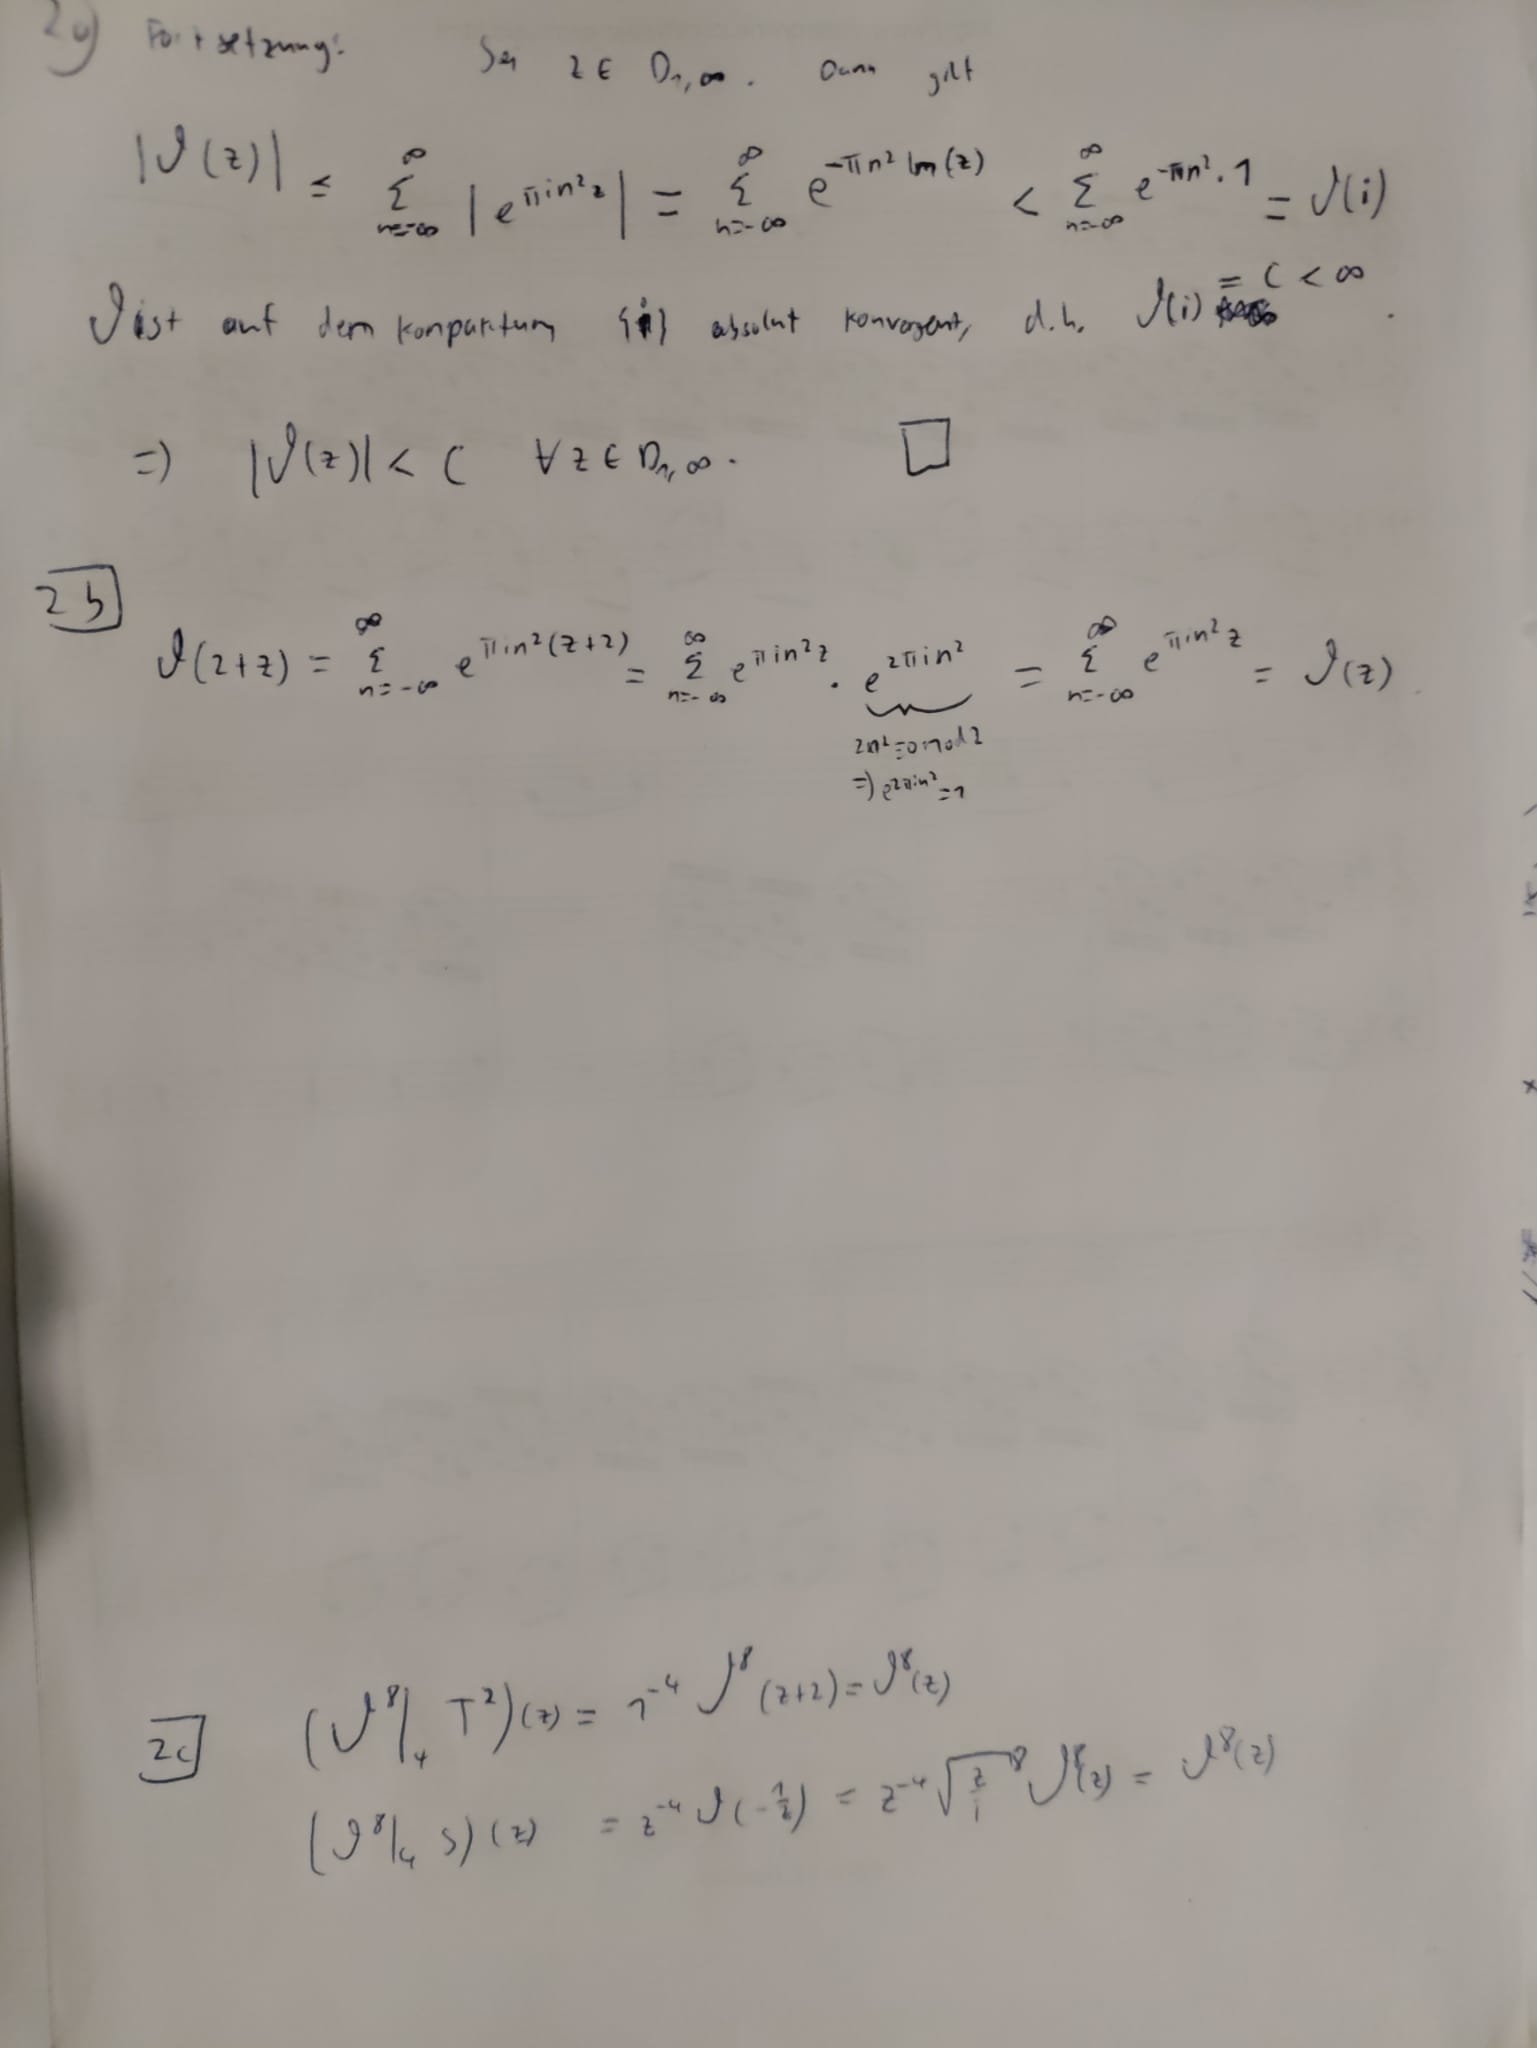 2a) Fortsetzung: Sei z ∈ D₁,∞. Dann gilt
|ϑ(z)| ≤ Σ_{n=-∞}^{∞} |e^{πin²z}| = Σ_{n=-∞}^{∞} e^{-πn² Im(z)} < Σ_{n=-∞}^{∞} e^{-πn²·1} = ϑ(i)
ϑ ist auf dem Kompaktum {i} absolut konvergent, d.h. ϑ(i) = C < ∞.
=> |ϑ(z)| < C ∀ z ∈ D₁,∞. □
2b
ϑ(2+z) = Σ_{n=-∞}^{∞} e^{πin²(z+2)} = Σ_{n=-∞}^{∞} e^{πin²z} · e^{2πin²} = Σ_{n=-∞}^{∞} e^{πin²z} = ϑ(z)
2n²=0 mod 2
=> e^{2πin²} = 1
2c (ϑ⁸|₄ T²)(z) = 1⁻⁴ ϑ⁸(z+2) = ϑ⁸(z)
(ϑ⁸|₄ S)(z) = z⁻⁴ ϑ(-1/z) = z⁻⁴ √(z/i)⁸ ϑ⁸(z) = ϑ⁸(z)